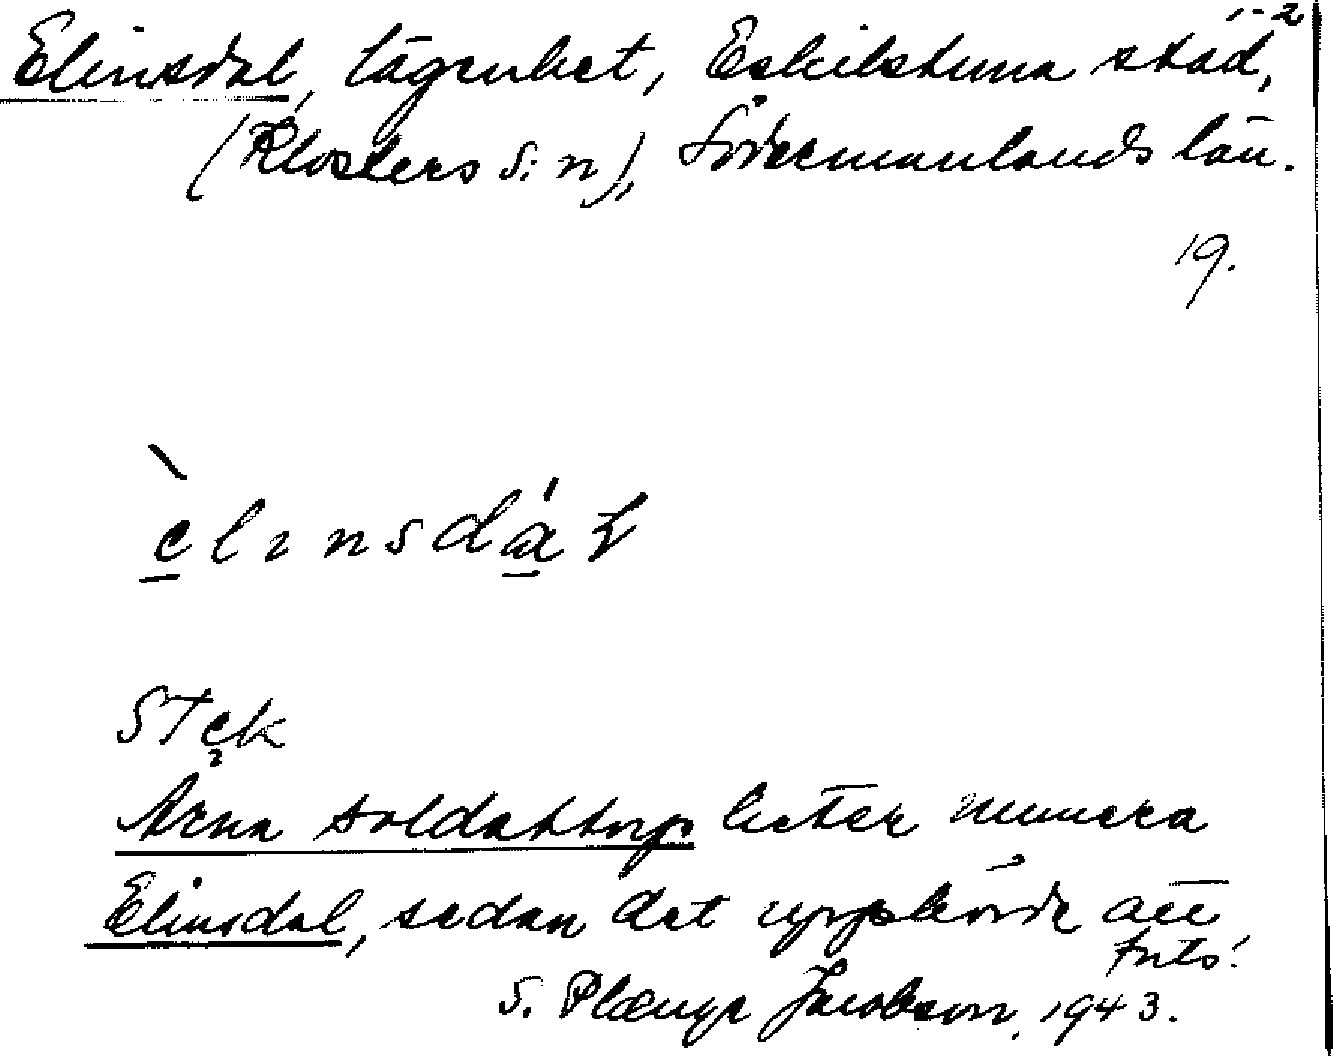 1-2
Elinsdal, lägenhet, Eskilstuna stad,
(Klosters s:n), Södermanlands län.
19.
è l ı n s d á ɫ
STek
Ärna soldattorp heter numera
Elinsdal, sedan det upphörde att
forts!
S. Plænge Jacobson, 1943.